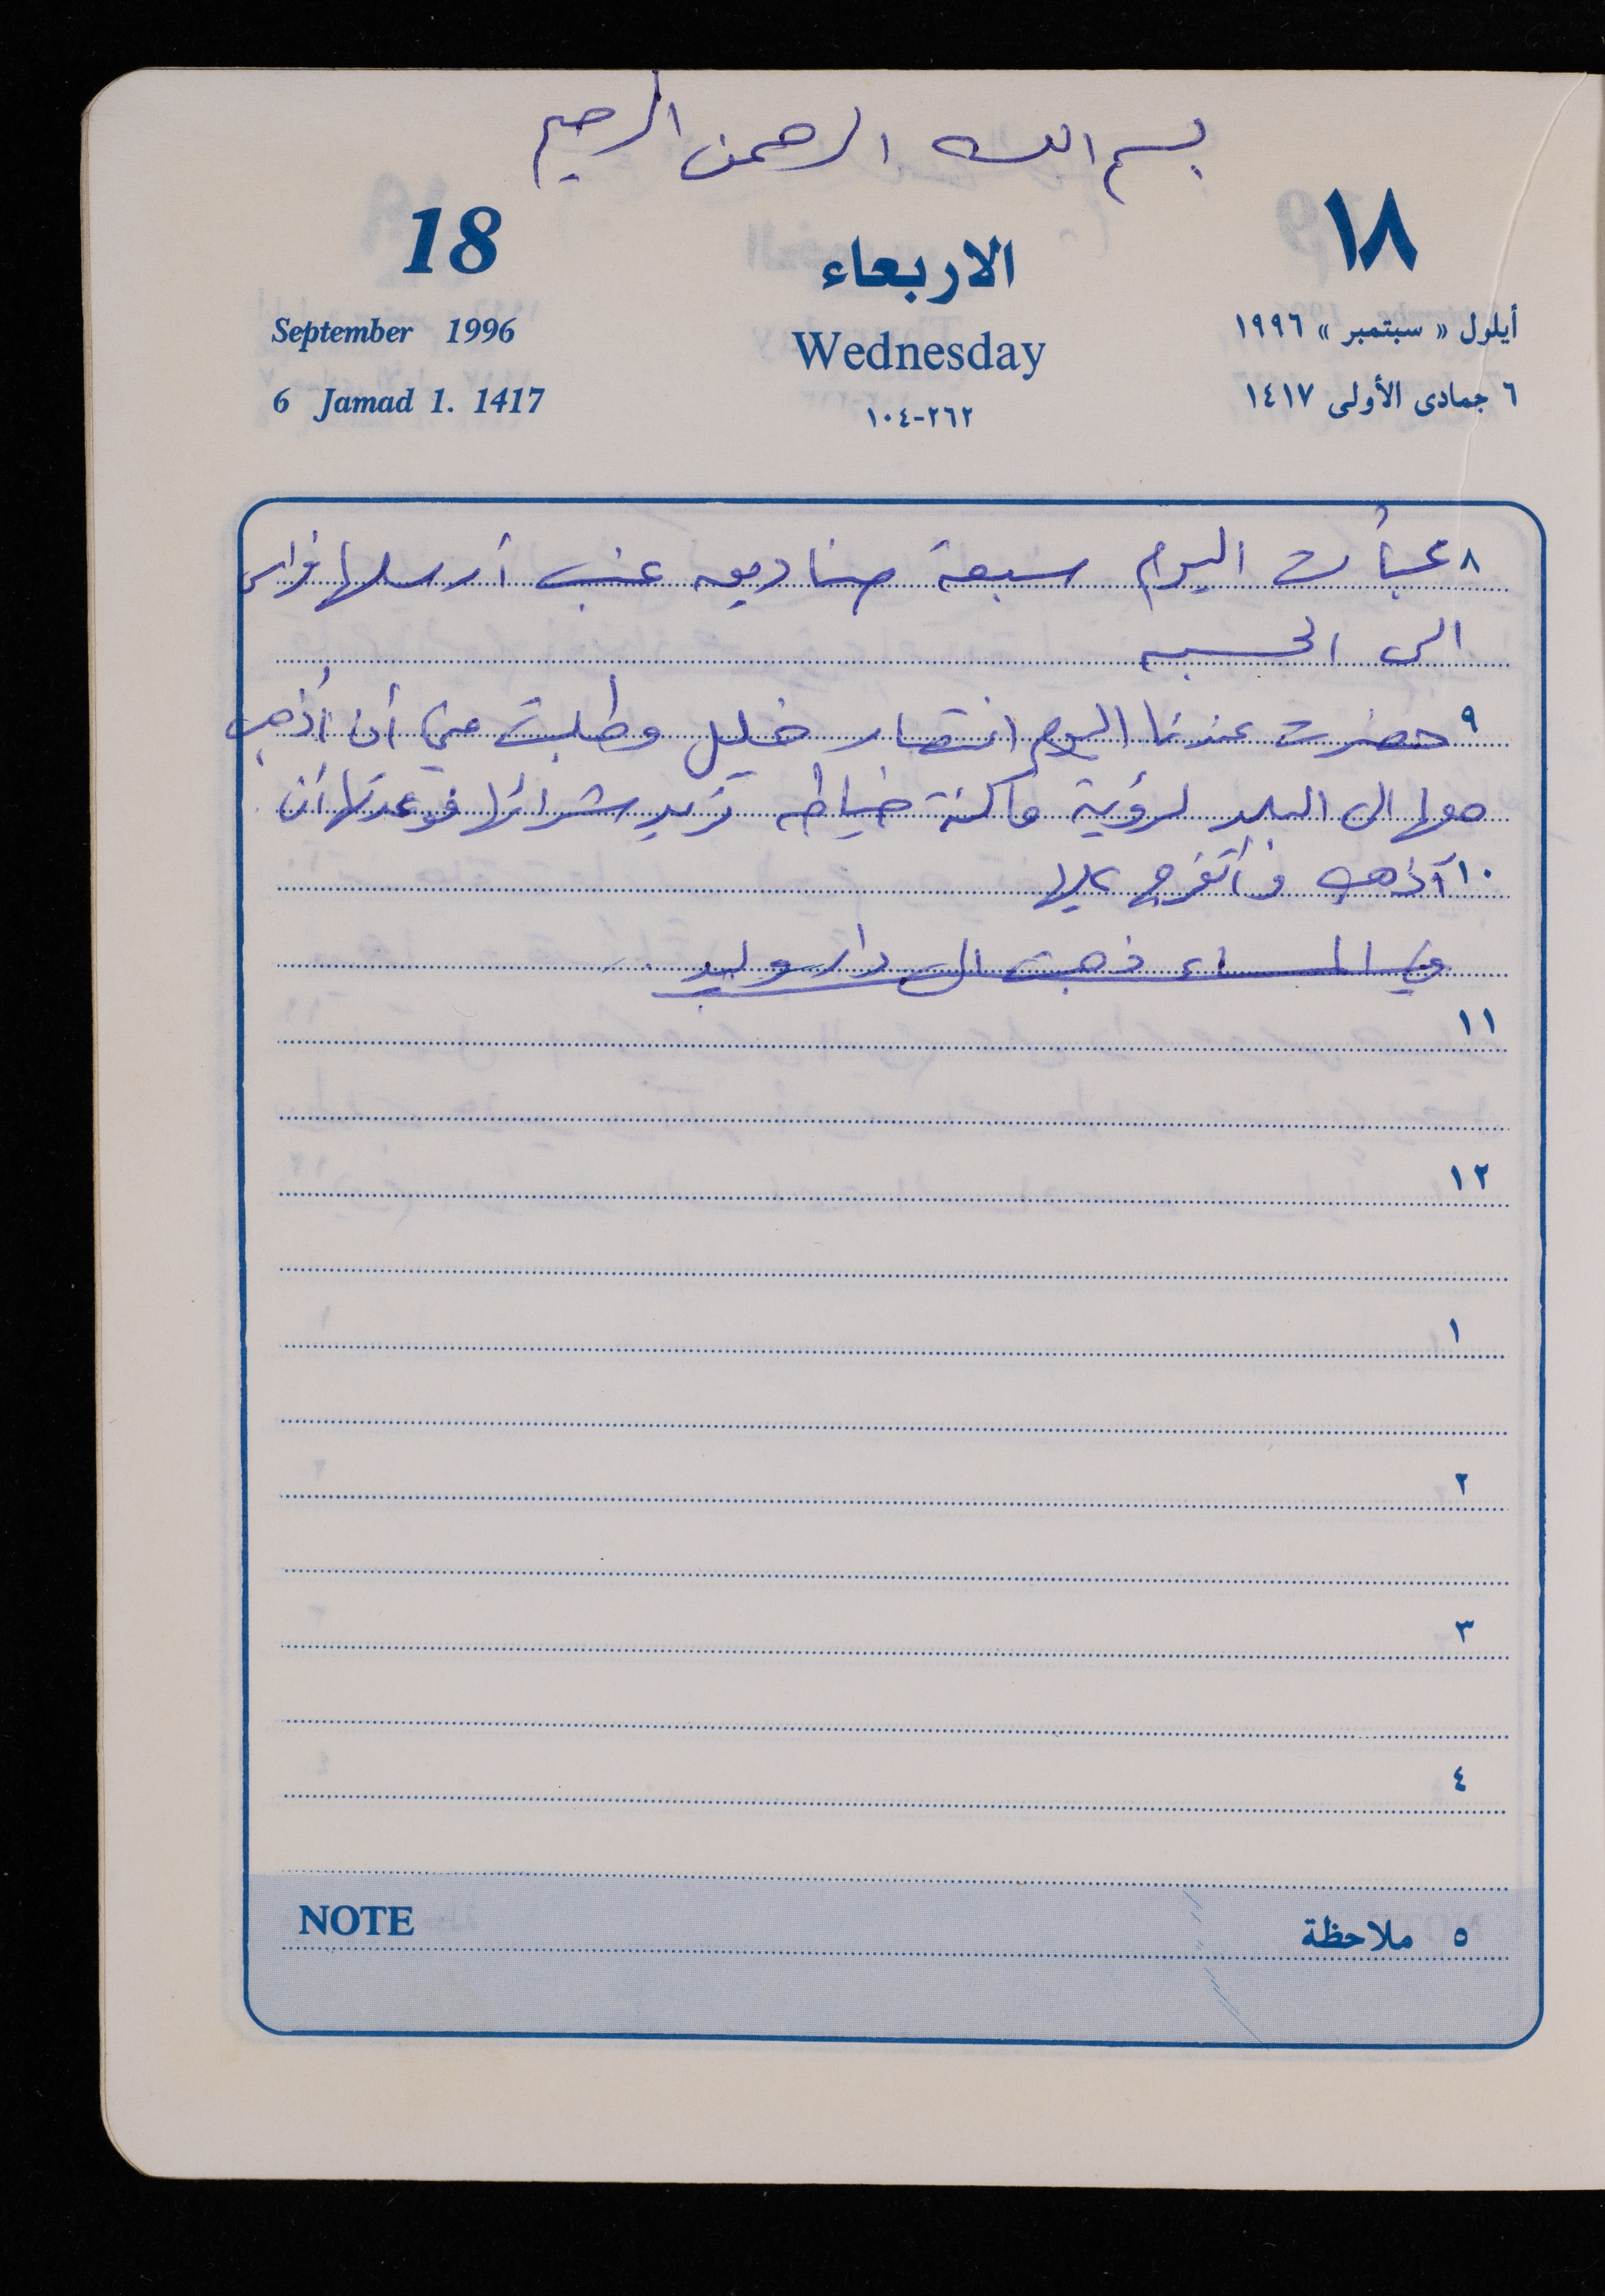 بسم الله الرحمن الرحيم
18 الاربعاء ١٨
September 1996 Wednesday أيلول « سبتمبر » ١٩٩٦
6 Jamad 1. 1417 ١٠٤-٢٦٢ ٦ جمادى الأولى ١٤١٧
٨ عبأت اليوم سبعة صناديق عنب أرسلها فراس
الى الحسبه
٩ حضرت عندنا اليوم انتصار خليل وطلبت مني أن أذهب
معها الى البلد لرؤية ماكنة خياطه تريد شرائها فوعدتها أن
١٠ أذهب فأتفرج عليها
وفي المساء ذهبت الى دار وليد
١١
١٢
١
٢
٣
٤
NOTE ٥ ملاحظة